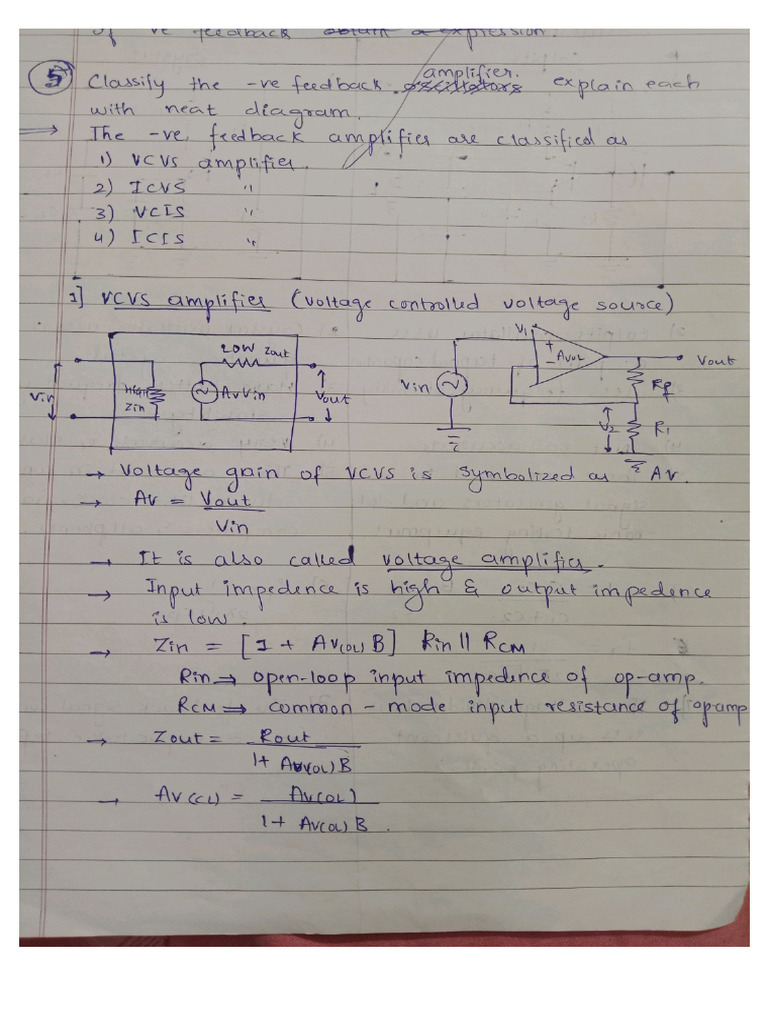 of -ve feedback obtain a expression.
5 Classify the -ve feedback amplifier. explain each
with neat diagram.
⇒ The -ve feedback amplifier are classified as
1) VCVS amplifier.
2) ICVS "
3) VCIS "
4) ICIS "
1] VCVS amplifier (voltage controlled voltage source)
Vin
High
Zin
LOW Zout
AvVin
Vout
Vin
V1
+
-
AVOL
Vout
Rf
V2
R1
→ Voltage gain of VCVS is symbolized as AV.
→ AV = Vout
Vin
→ It is also called voltage amplifier.
→ Input impedence is high & output impedence
is low.
→ Zin = [1 + AV(OL) B] Rin || RCM
Rin → open-loop input impedence of op-amp.
RCM → common-mode input resistance of opamp
→ Zout = Rout
1+ AV(OL) B
→ AV(CL) = AV(OL)
1+ AV(OL) B.